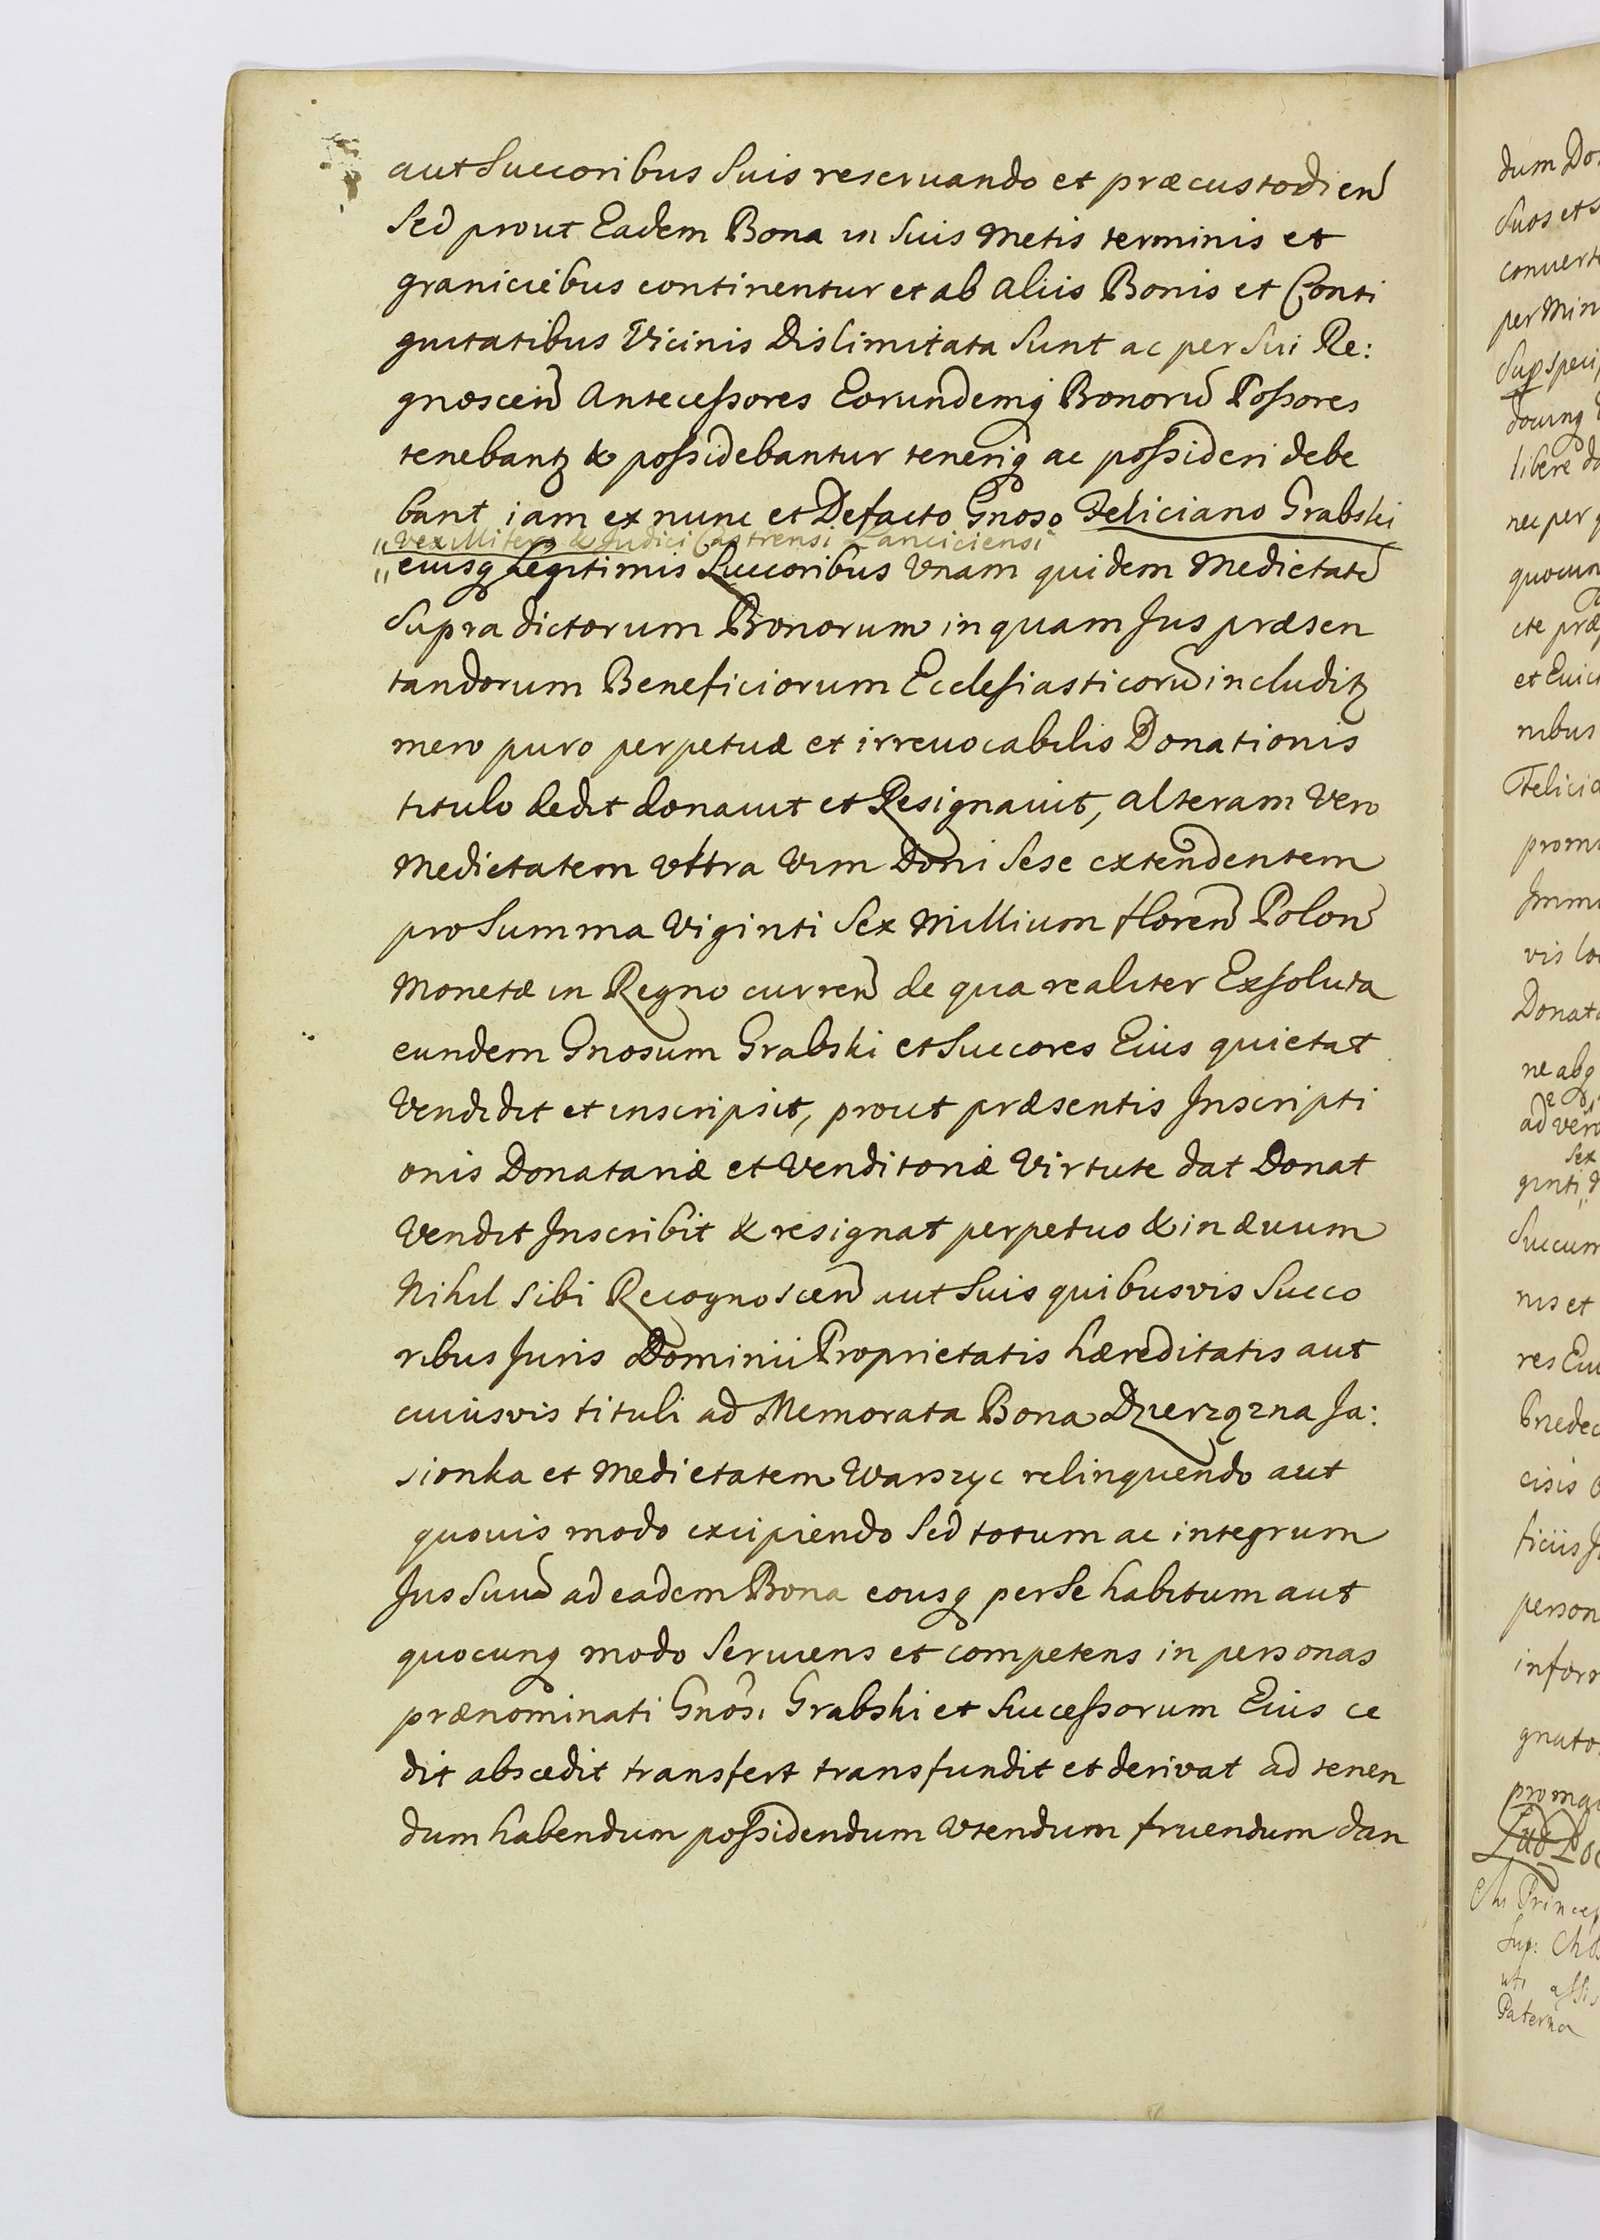 aut Succoribus Suis reseruando et præcustodien
Sed prout Eadem Bona in Suis Metis terminis et
graniciebus continentur et ab aliis Bonis et Conti
guitatibus Vicinis Dislimitata Sunt ac per Sui Re:
gnoscen Antecessores Eorundemq Bonoru Possores
tenebantz & possidebantur teneriq ac possideri debe
bant iam ex nunc et Defacto Gnoso Feliciano Grabski
"Vexillifero & Judici Castrensi Lanciciensi
"eiusq Legitimis Succoribus Vnam quidem Medietate
Supra dictorum Bonorum in quam Jus præsen
tandorum Beneficiorum Ecclesiasticoru includitz
mero puro perpetuæ et irreuocabilis Donationis
titulo dedit donauit et Resignauit, alteram Vero
Medietatem Vltra Vim Doni Sese extendentem
pro Summa Viginti Sex Millium floren Polon
Monetæ in Regno curren de qua realiter Exsoluta
eundem Gnosum Grabski et Succores Eius quietat
Vendidit et inscripsit, prout præsentis Inscripti
onis Donatariæ et Venditoriæ Virtute dat Donat
Vendit Inscribit & resignat perpetuo & in æuum
Nihil Sibi Recognoscen aut Suis quibusvis Succo
ribus Juris Dominii Proprietatis hæreditatis aut
cuiusvis tituli ad Memorata Bona Dzierzązna Ja:
sionka et Medietatem Warszyc relinquendo aut
quouis modo excipiendo Sed totum ac integrum
Jus Suu ad eadem Bona eousq per Se habitum aut
quocunq modo Seruiens et competens in personas
prænominati Gnosi Grabski et Successorum Eius ce
dit abscedit transfert transfundit et derivat ad tenen
dum habendum possidendum Vtendum fruendum dan
dum
Suos et
per
libere
nec per
et
nibus
ne abq
Sex
nis et
Paterna